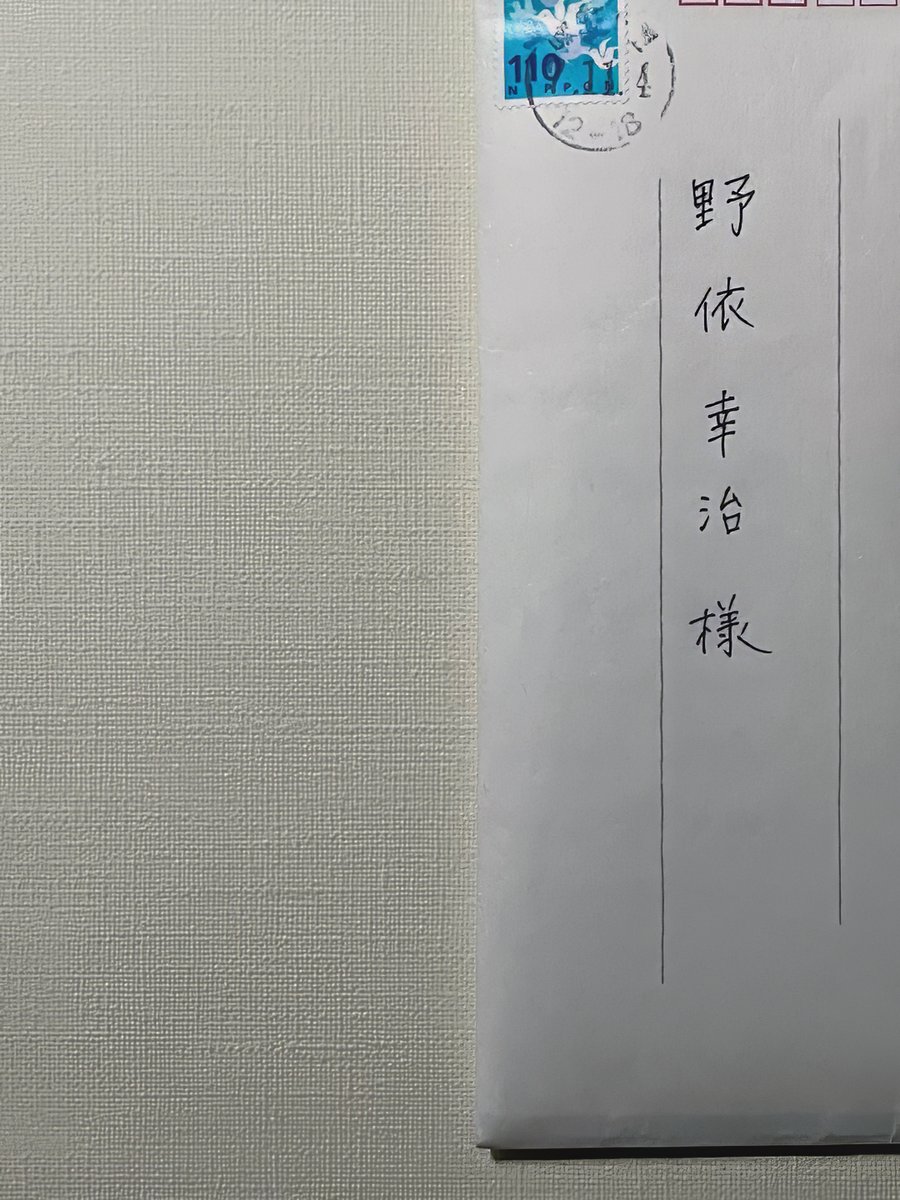 110
NIPPON
.11.4
野依幸治様